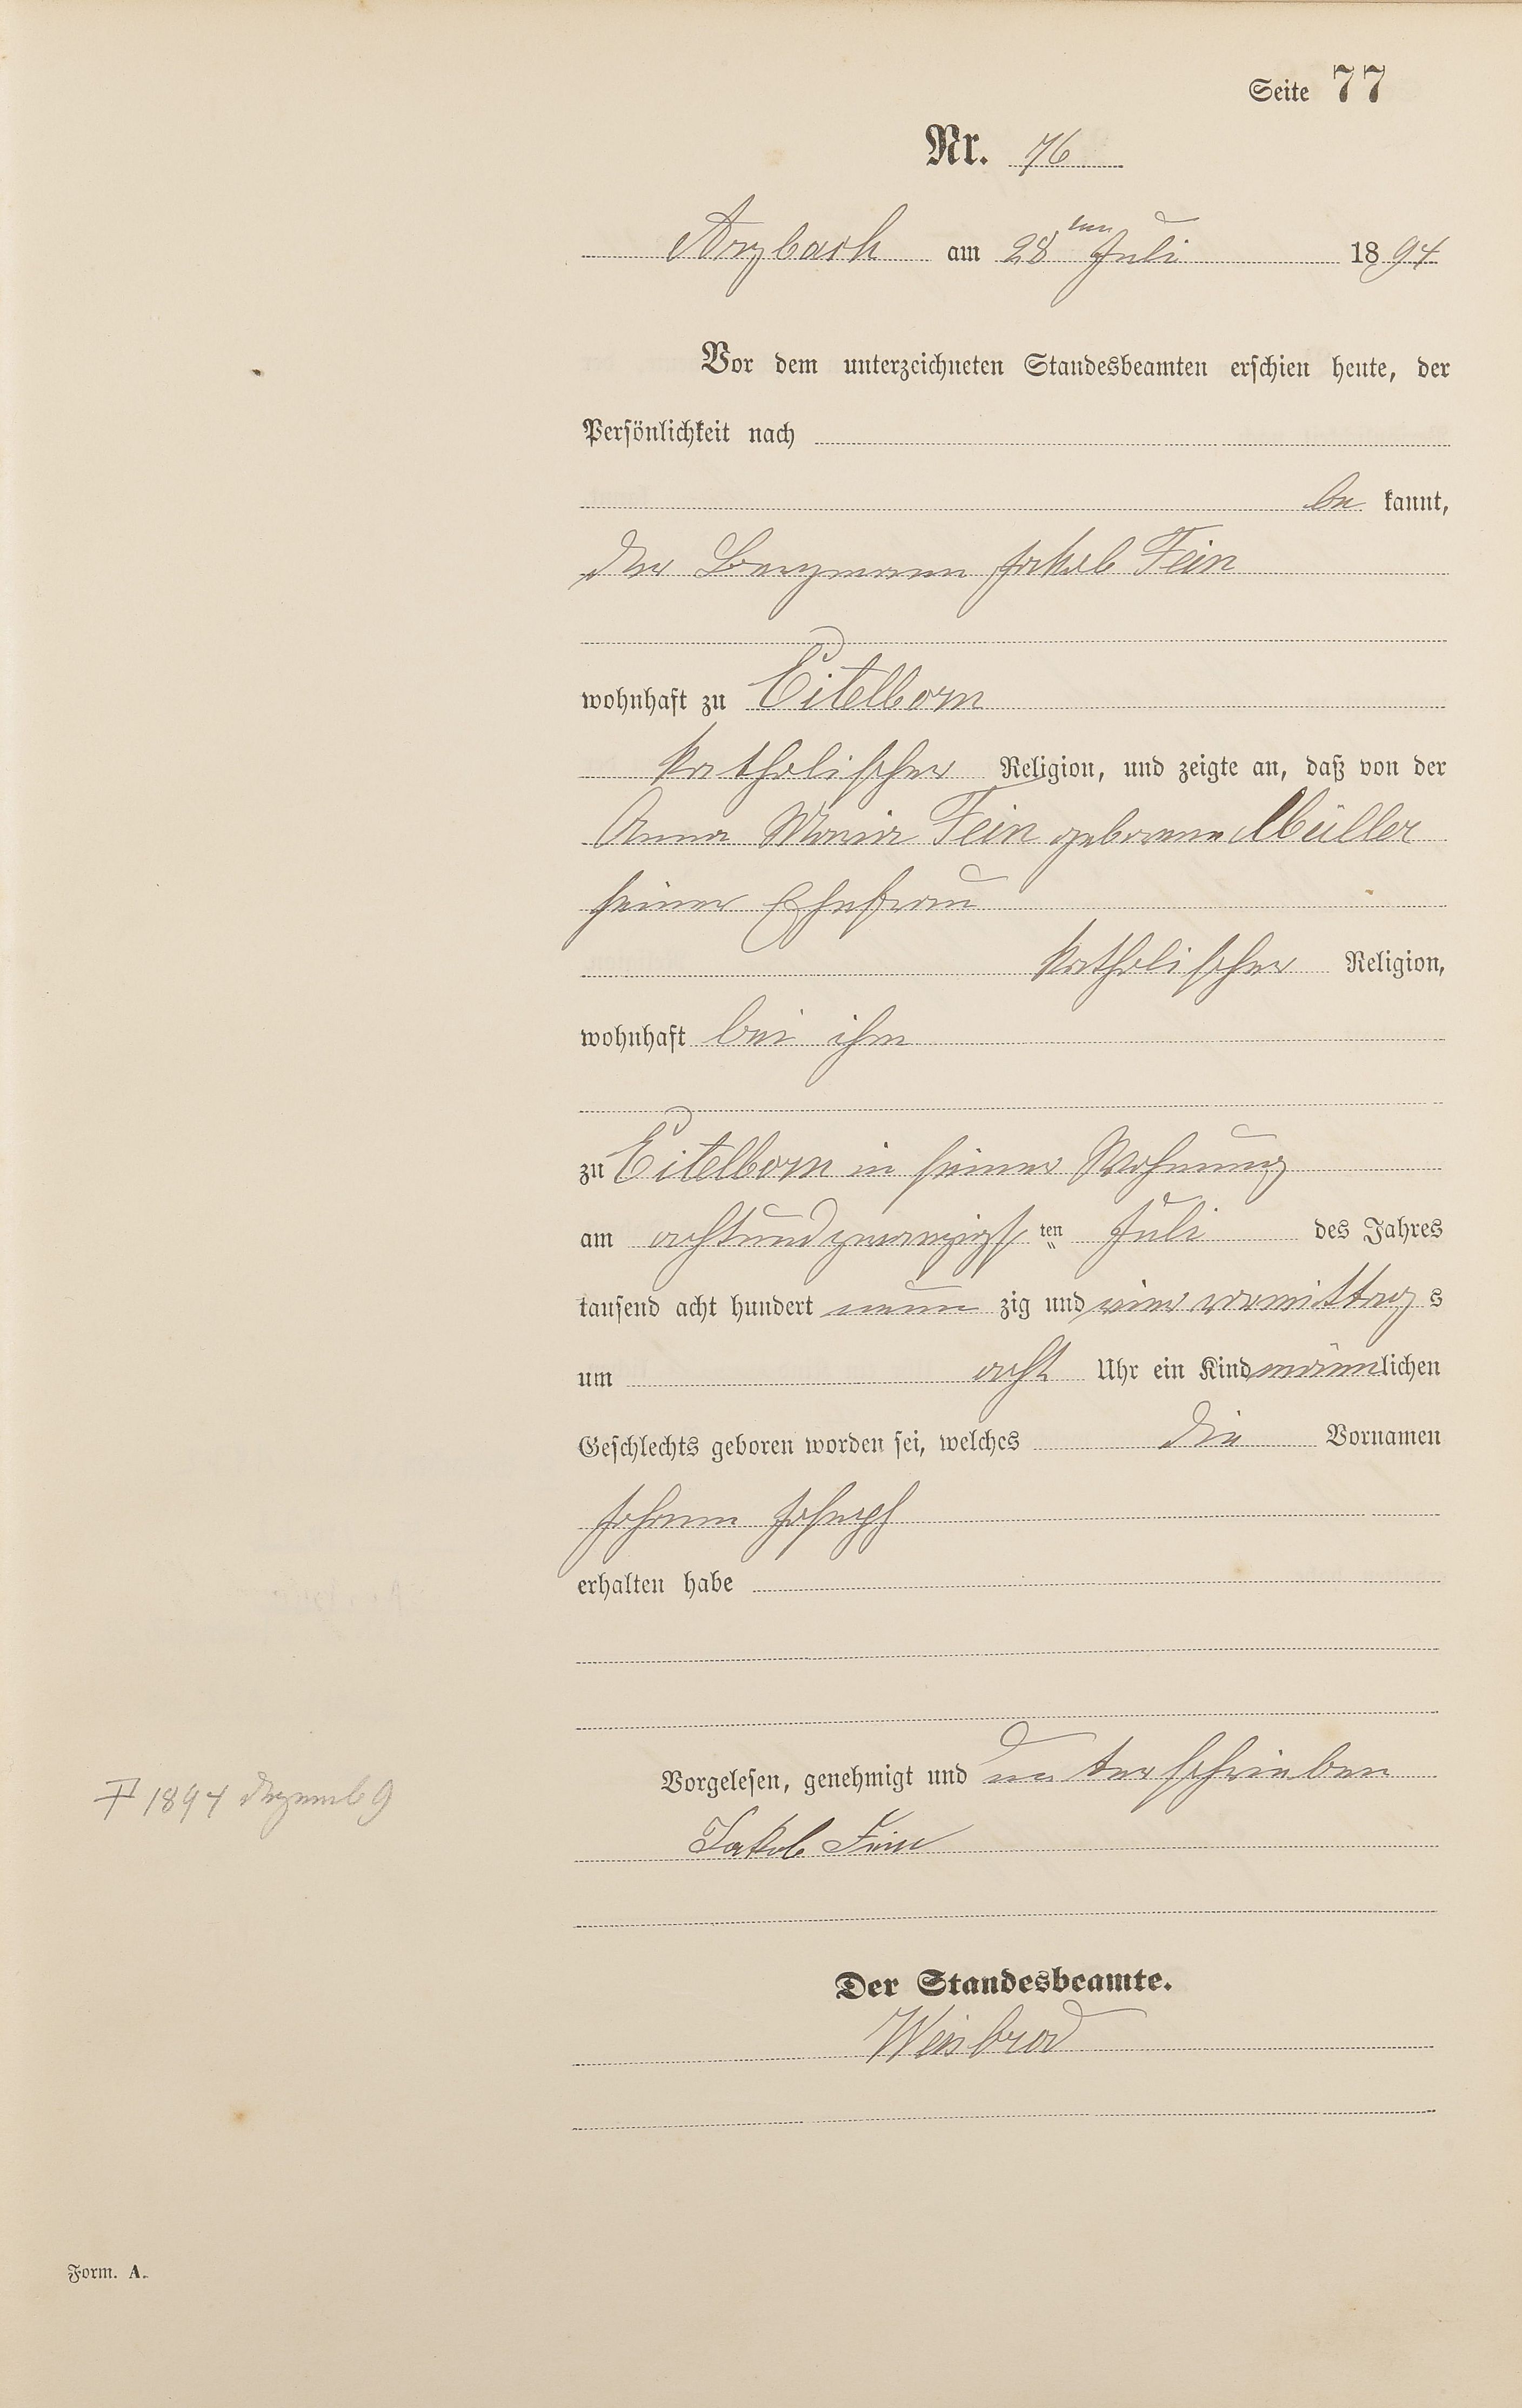 Seite 77
Nr. 76
Arzbach am 28ten Juli 1894
Vor dem unterzeichneten Standesbeamten erschien heute, der
Persönlichkeit nach
be kannt,
der Bergmann Jakob Fein
wohnhaft zu Eitelborn
katholischer Religion, und zeigte an, daß von der
Anna Maria Fein geborene Müller
seiner Ehefrau
katholischer Religion,
wohnhaft bei ihm
zu Eitelborn in seiner Wohnung
am achtundzwanzigsten Juli des Jahres
tausend acht hundert neun zig und vier vormittags
um acht Uhr ein Kind männlichen
Geschlechts geboren worden sei, welches die Vornamen
Johann Joseph
erhalten habe
Vorgelesen, genehmigt und unterschrieben
† 1894 Dezemb 9
Jakob Fein
Der Standesbeamte.
Weisbrod
Form. A.